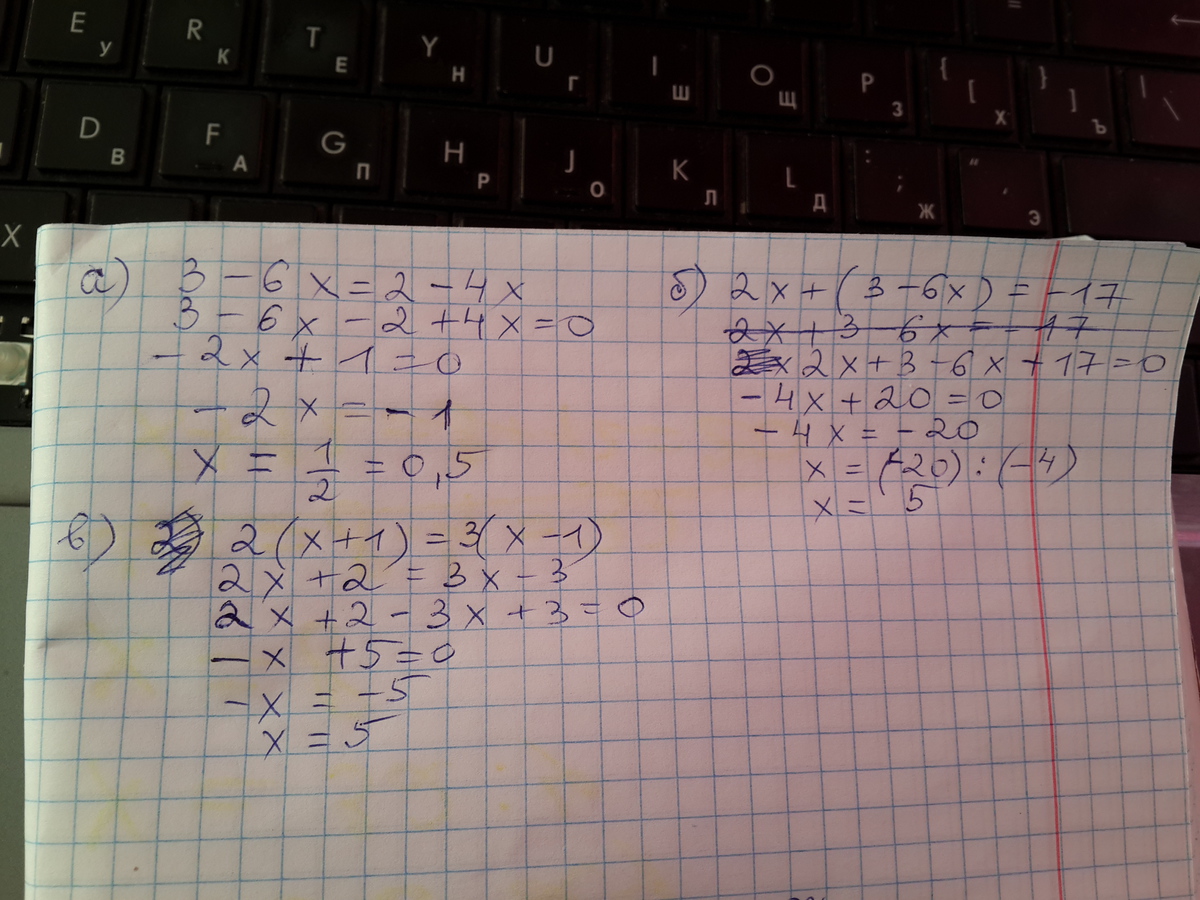 E У R К T Е Y Н U Г I Ш O Щ P З { [ Х } ] Ъ | \
D В F А G П H Р J О K Л L Д : ; Ж " ' Э
X
а) 3 - 6x = 2 - 4x
3 - 6x - 2 + 4x = 0
- 2x + 1 = 0
- 2x = - 1
x = 1/2 = 0,5
б) 2x + (3 - 6x) = -17
2x + 3 - 6x = - 17
2x + 3 - 6x + 17 = 0
- 4x + 20 = 0
- 4x = - 20
x = (-20) : (-4)
x = 5
в) 2(x + 1) = 3(x - 1)
2x + 2 = 3x - 3
2x + 2 - 3x + 3 = 0
- x + 5 = 0
- x = - 5
x = 5